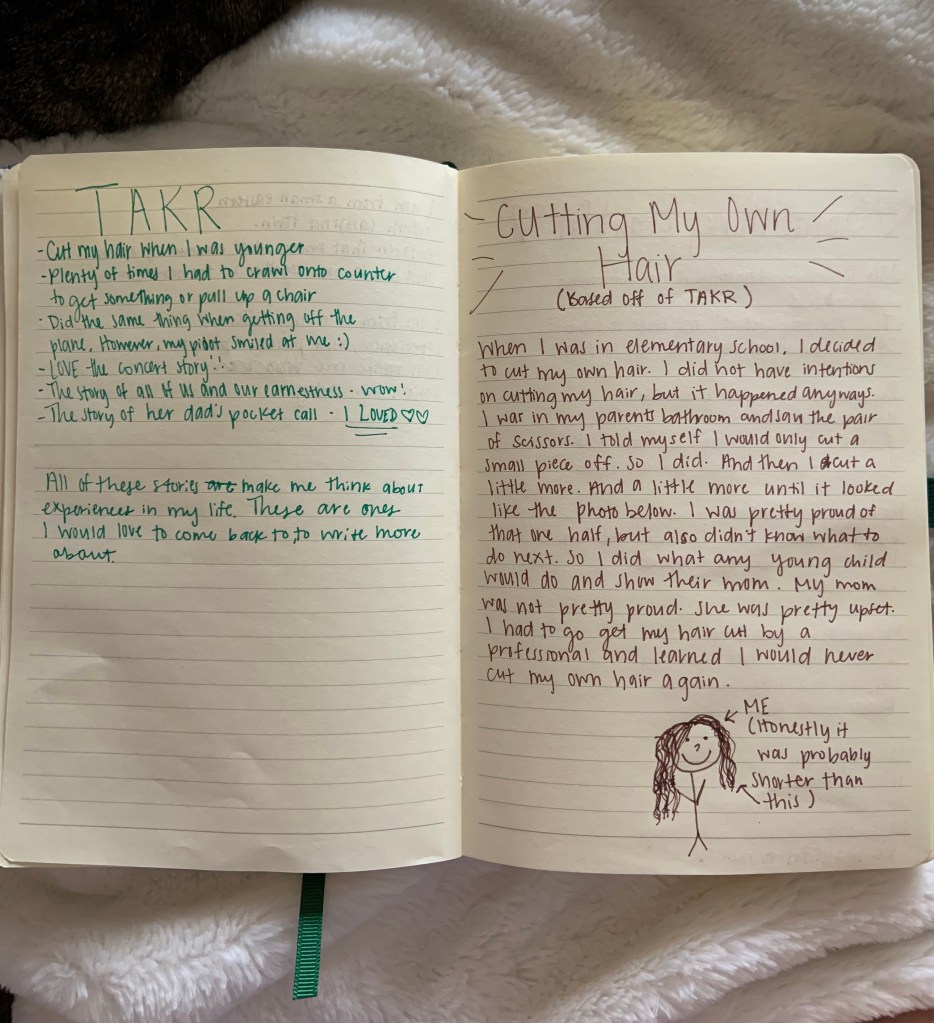 TAKR
-Cut my hair when I was younger
-Plenty of times I had to crawl onto counter
to get something or pull up a chair
- Did the same thing when getting off the
plane. However, my pilot smiled at me :)
- LOVE the concert story!!
- The story of all of us and our earnestness - wow!
- The story of her dad's pocket call - I LOVED ♡♡
All of these stories are make me think about
experiences in my life. These are ones
I would love to come back to, to write more
about.
Cutting My Own
Hair
(Based off of TAKR)
When I was in elementary school, I decided
to cut my own hair. I did not have intentions
on cutting my hair, but it happened anyways.
I was in my parents bathroom and saw the pair
of scissors. I told myself I would only cut a
small piece off. So I did. And then I cut a
little more. And a little more until it looked
like the photo below. I was pretty proud of
that one half, but also didn't know what to
do next. So I did what any young child
would do and show their mom. My mom
was not pretty proud. She was pretty upset.
I had to go get my hair cut by a
professional and learned I would never
cut my own hair again.
ME
(Honestly it
was probably
shorter than
this)